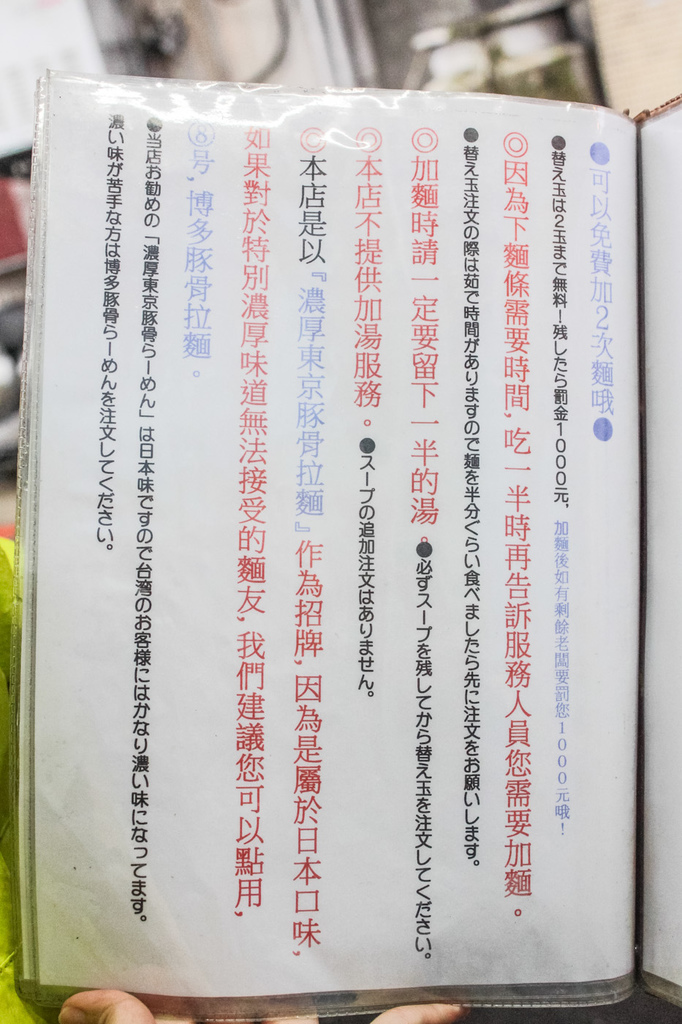 ●可以免費加2次麵哦●
●替え玉は2玉まで無料！残したら罰金1000元，加麵後如有剩餘老闆要罰您1000元哦！
◎因為下麵條需要時間，吃一半時再告訴服務人員您需要加麵。
●替え玉注文の際は茹で時間がありますので麺を半分ぐらい食べましたら先に注文をお願いします。
◎加麵時請一定要留下一半的湯。●必ずスープを残してから替え玉を注文してください。
◎本店不提供加湯服務。●スープの追加注文はありません。
◎本店是以『濃厚東京豚骨拉麵』作為招牌，因為是屬於日本口味，
如果對於特別濃厚味道無法接受的麵友，我們建議您可以點用，
⑧号，博多豚骨拉麵。
●当店お勧めの「濃厚東京豚骨らーめん」は日本味ですので台湾のお客様にはかなり濃い味になってます。
濃い味が苦手な方は博多豚骨らーめんを注文してください。